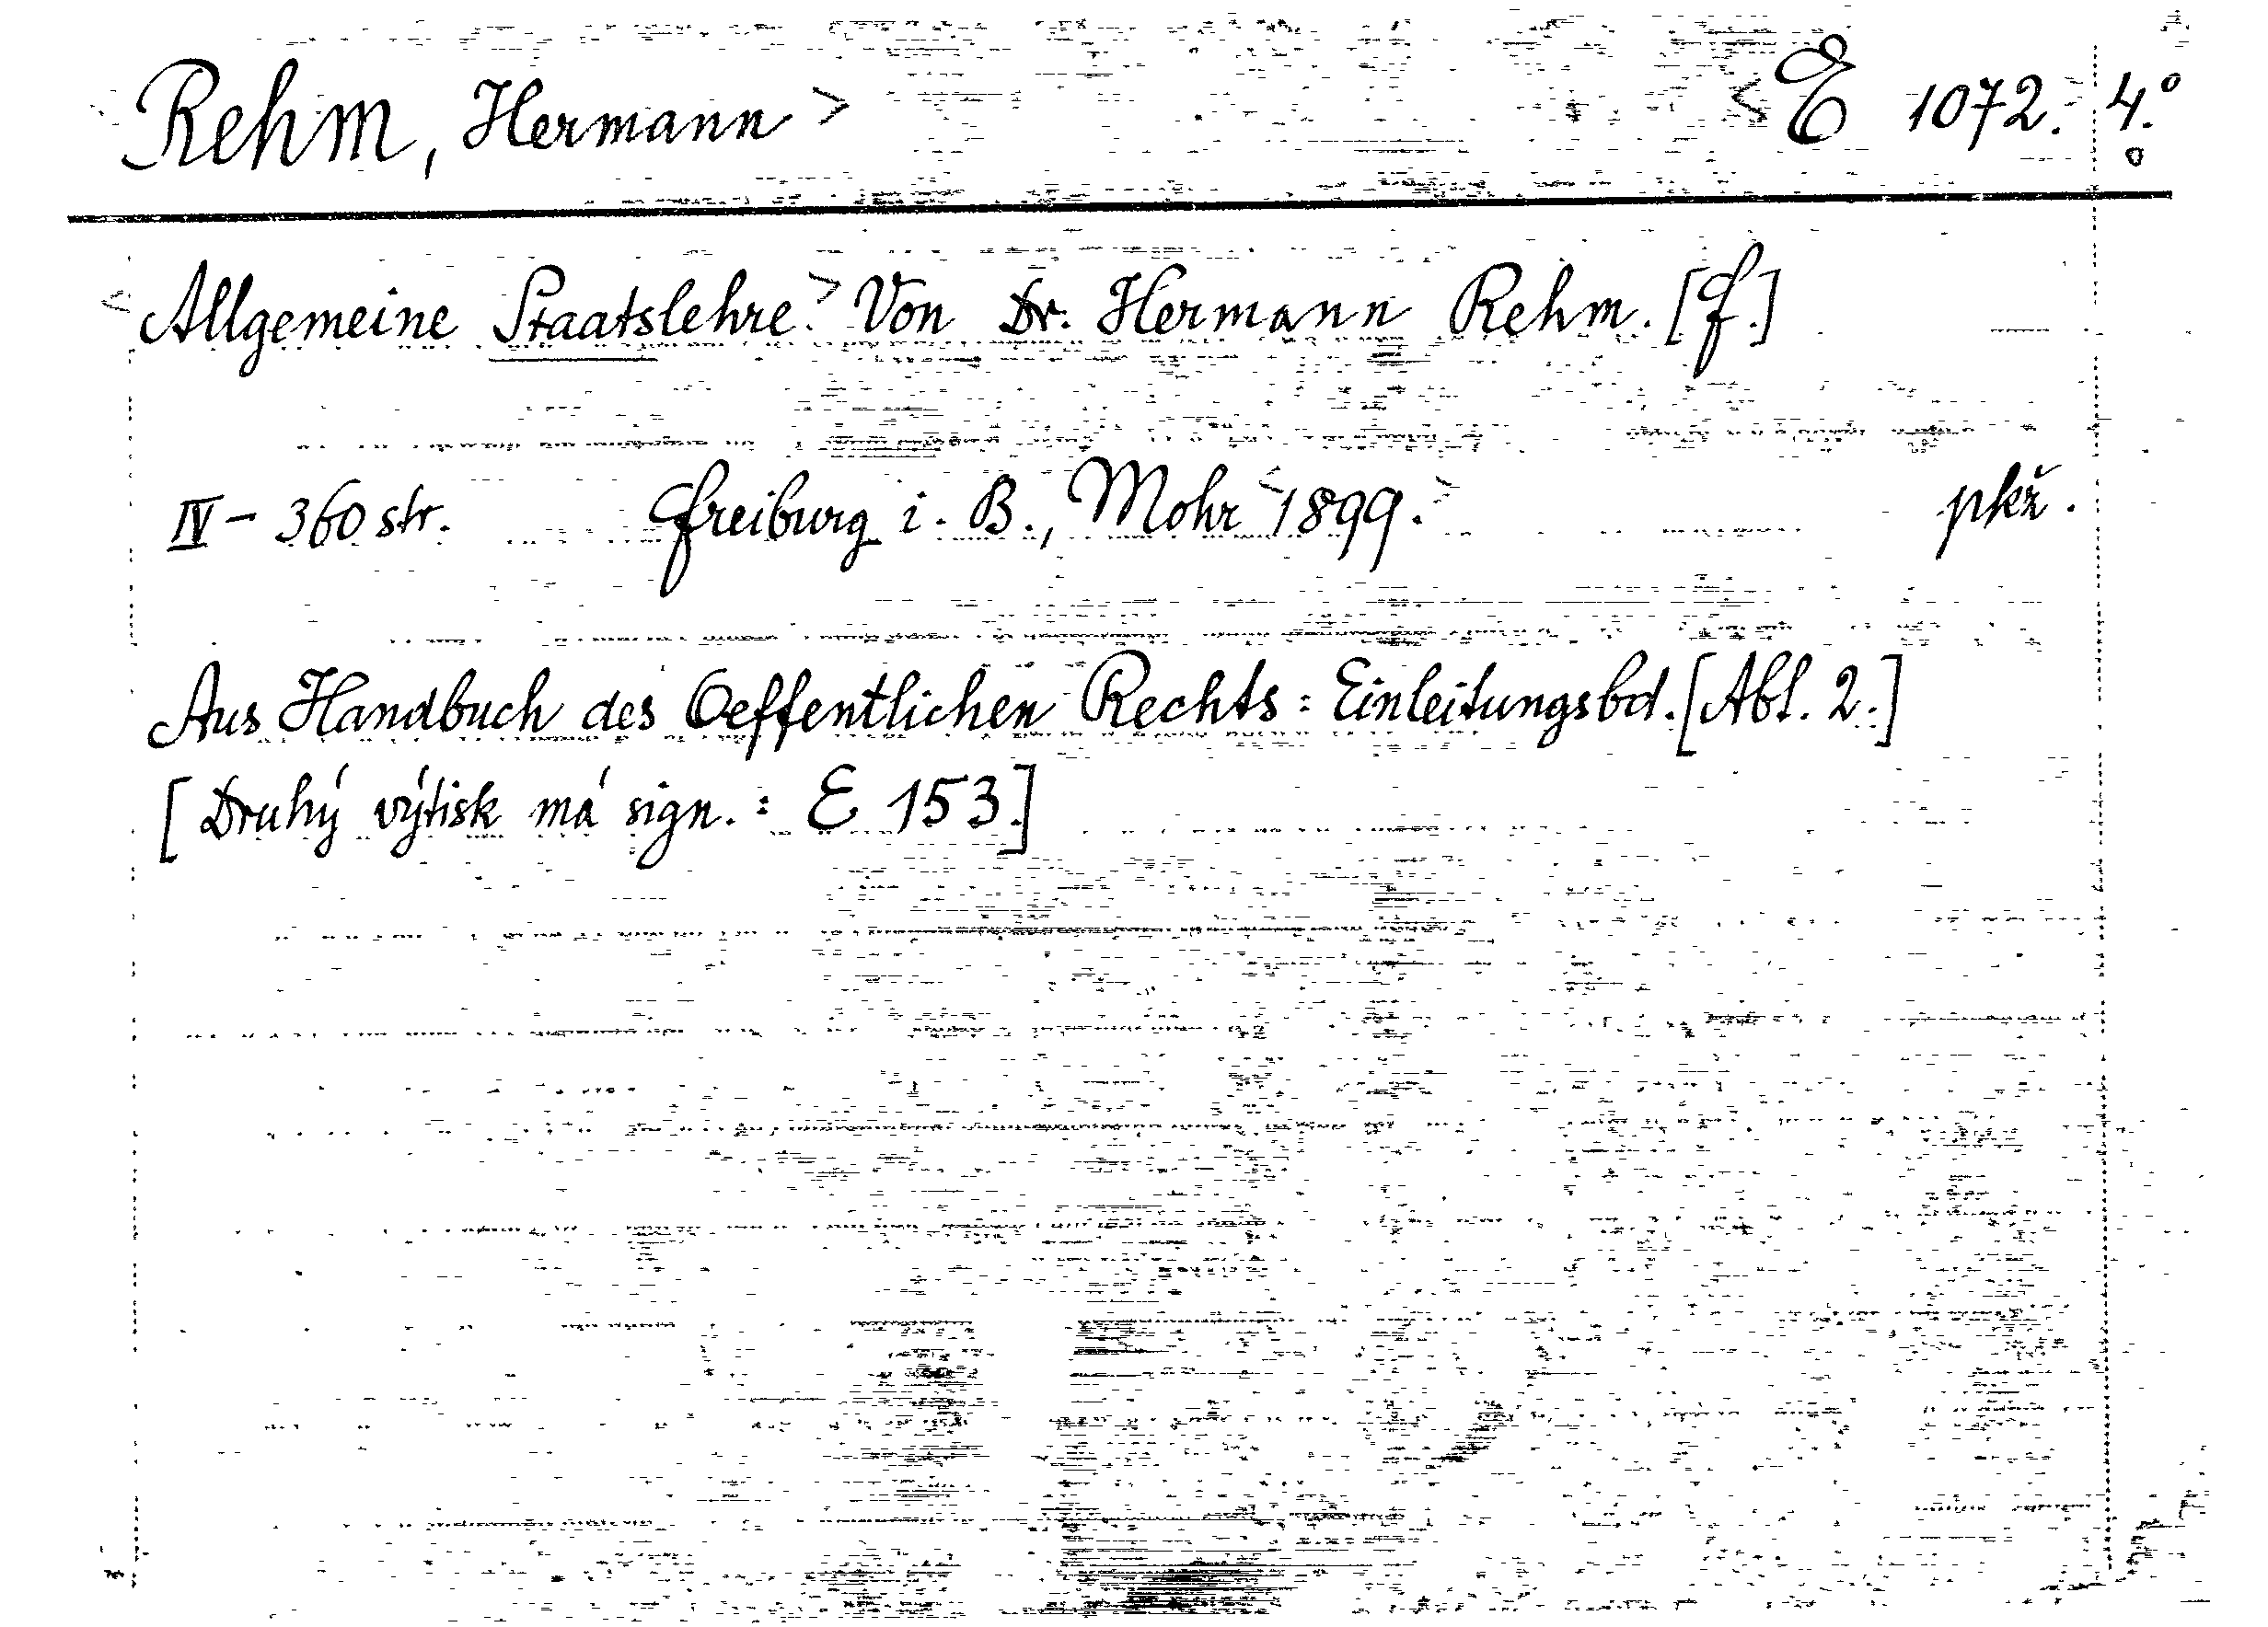 Rehm, Hermann > < E 1072. 4.°
< Allgemeine Staatslehre. > Von Dr. Hermann Rehm. [f.]
IV - 360 str. Freiburg i. B., Mohr < 1899. > pkž.
Aus Handbuch des Oeffentlichen Rechts : Einleitungsbd. [Abt. 2.]
[Druhý výtisk má sign. : E 153.]